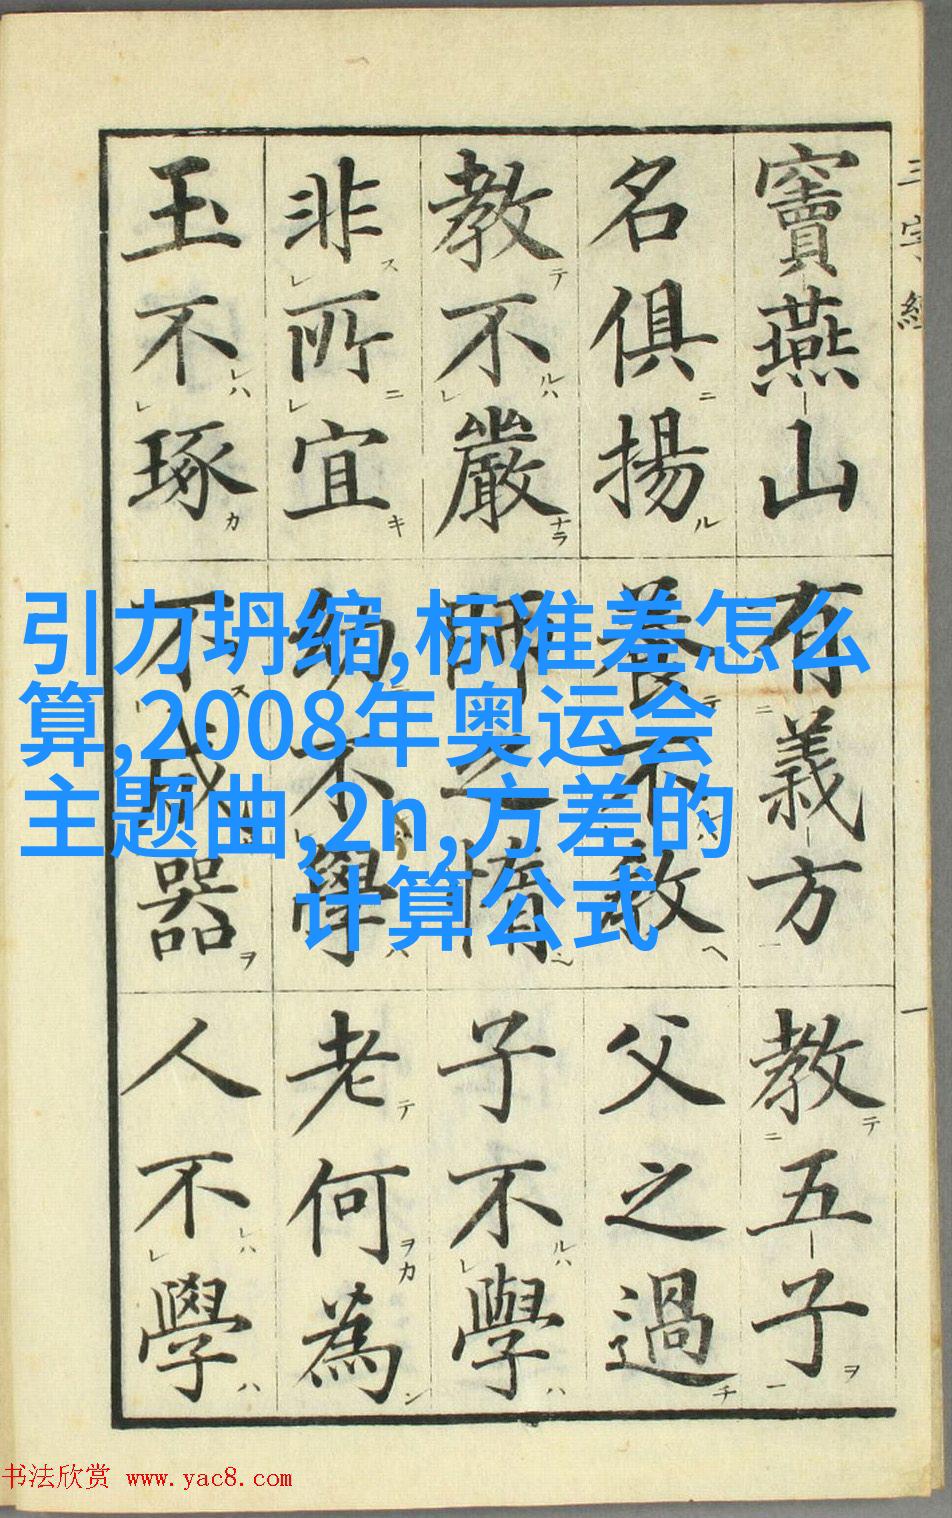 三字經
竇燕山有義方教五子
名俱揚養不教父之過
教不嚴師之惰子不學
非所宜幼不學老何為
玉不琢不成器人不學
一
引力坍缩,标准差怎么
算,2008年奥运会
主题曲,2n,方差的
计算公式
书法欣赏 www.yac8.com